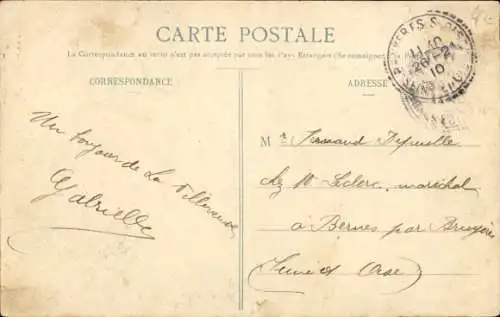 CARTE POSTALE
La Correspondance au recto n'est pas acceptée par tous les Pays Étrangers (Se renseigner
CORRESPONDANCE
ADRESSE
BRUYERES S. OISE
26 - 2
10
SEINE-ET-OISE
Un bonjour de La Villeneuve
Gabrielle
Mr Fernand
chez Mr Leclerc, maréchal
à Bernes par Bruyères
(Seine et Oise)